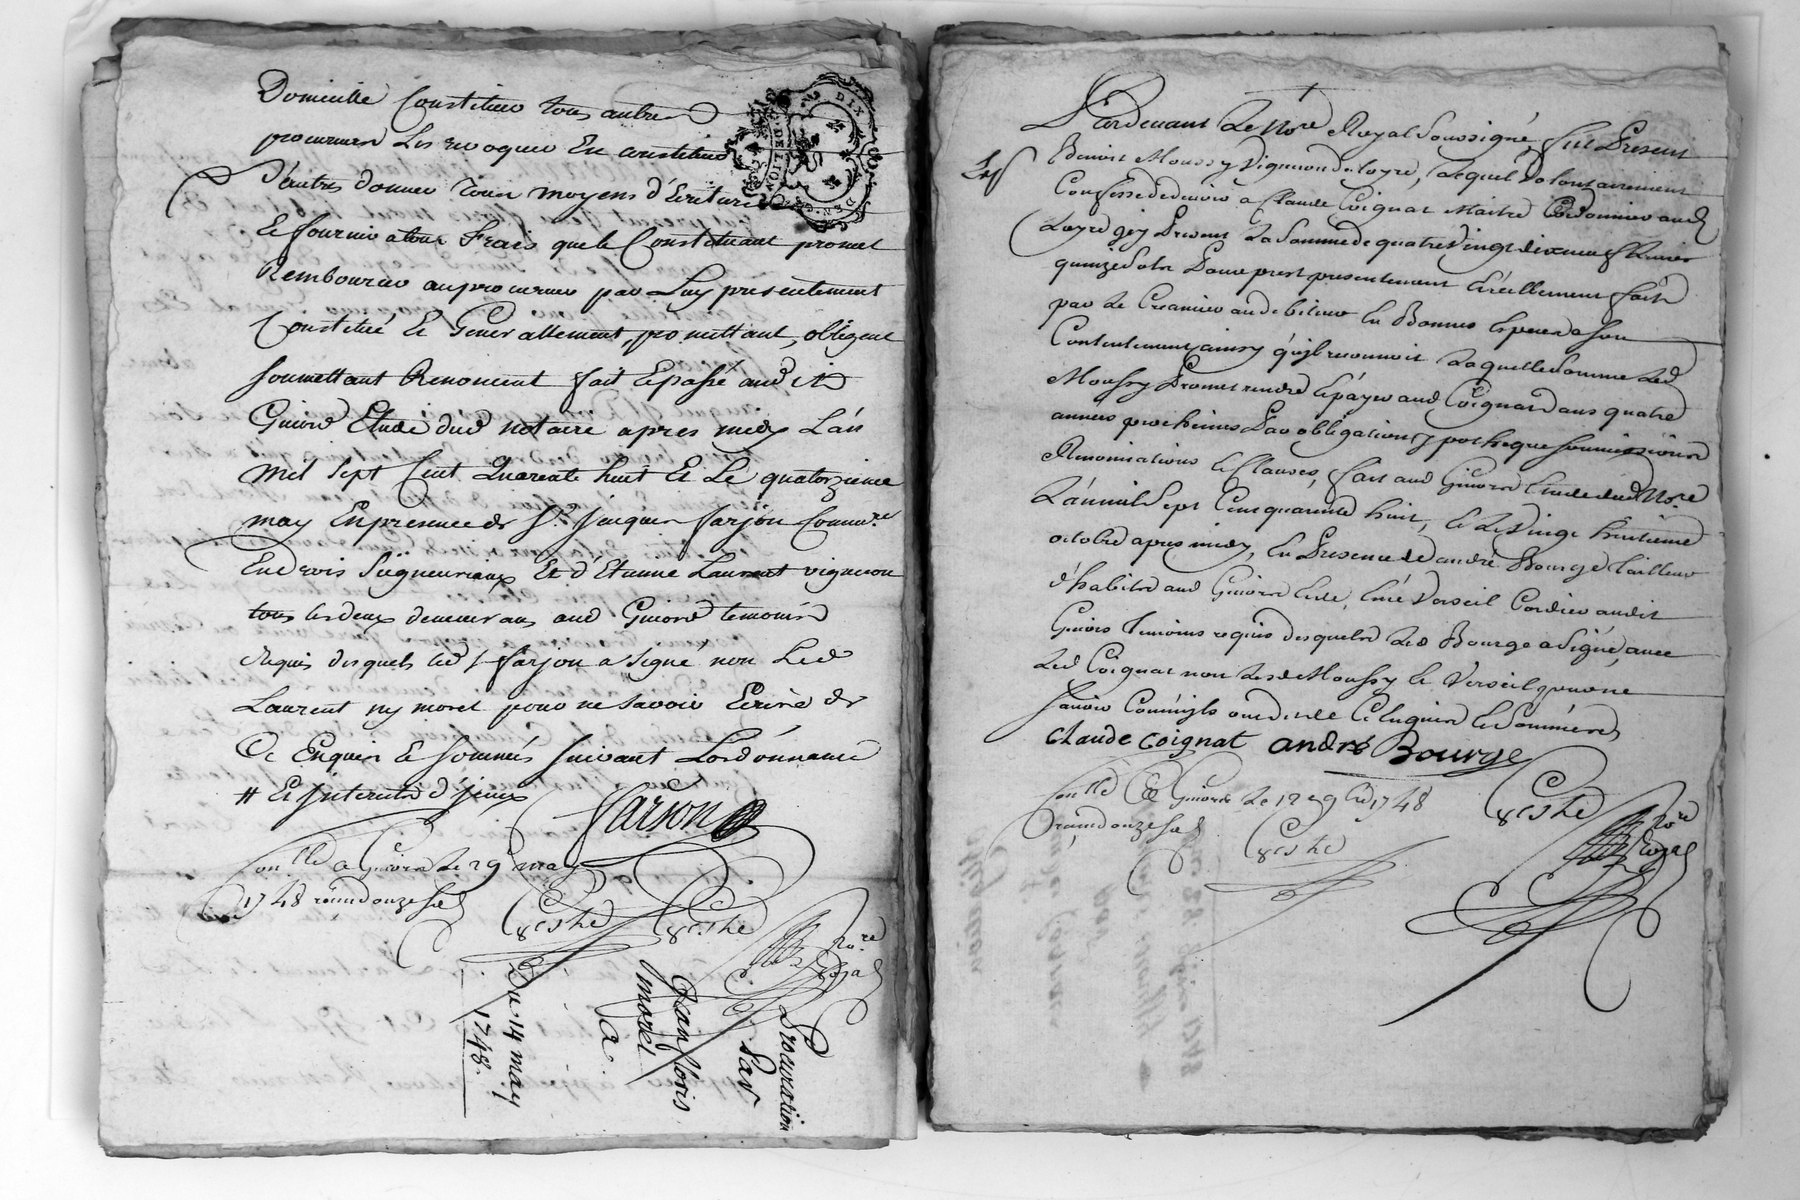 Domicille Constituer tous autres
procureurs Les revoquer En constituer
D'autres donner tous moyens d'Ecritures
Et fournir a tous frais que le Constituant promet
Rembourcer au procureur par Luy presentement
Constitué Et Generallement, promettant, obligent
soumettant Renoncent fait Et passé aud it
Givors Etude dud notaire apres midy L'an
mil sept Cent Quarente huit Et Le quatorzieme
may En presence de Sr. Jacques farjon Commre.
En droits Seigneuriaux Et d'Etienne Laurent vigneron
tous les deux demeurans aud Givors temoins
Requis desquels led Sr farjon a signé non Led
Laurent ny morel pour ne savoir Ecrire de
Ce Enquis Et sommés suivant Lordonnance
# Et
farjon
Conllé a Givors Le 29 may
1748 douze sols
Nore
Royal
Procuration
Par
francois
morel
a
Du 14 may
1748.
Pardevant Le Nore Royal Soussigné, fut Present
Benoit Moussy Vigneron de Loyre, Lequel Volontairement
Confesse devoir a Claude Coignat Maitre Cordonnier aud
Loyre icy Present La Somme de quatre Vingt dix neuf Livres
quinze Sols Pour prest presentement Et réellement fait
par Le Creancier au debiteur En Bonnes Especes a son
Contentement ainsy qu'il reconnoit Laquelle Somme Led
Moussy Promet rendre Et payer aud Coignat Dans quatre
années prochaines Par obligations hypotheque soumissions
Renonciations Et Clauses, fait aud Givors Etude dud Nore
L'an mil Sept Cent quarente huit, Et Le Vingt huitieme
octobre apres midy, En Presence de andré Bourge tailleur
d'habits aud Givors Et de Verseil Cordier audit
Givors temoins requis desquels Led Bourge a Signé, avec
Led Coignat non Led Moussy Et Verseil pour ne
Sçavoir Comm'ils ont dit de Ce Enquis Et Sommés
claude coignat andré Bourge
Conllé a Givors Le 9bre 1748
douze sols
Nore
Royal